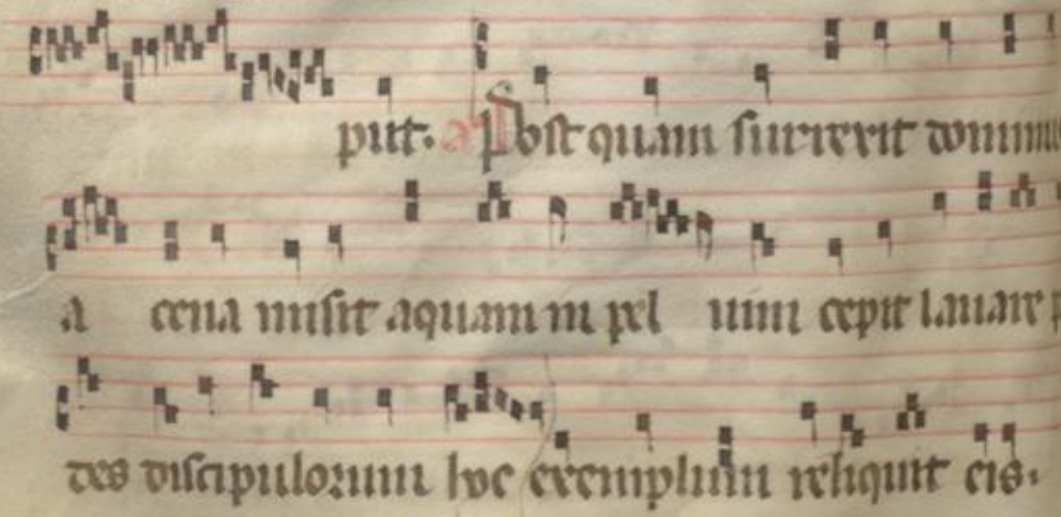 put. a Post quam surrexit dominu
a cena misit aquam in pel uim cepit lauare
des discipulorum hoc exemplum reliquit eis.